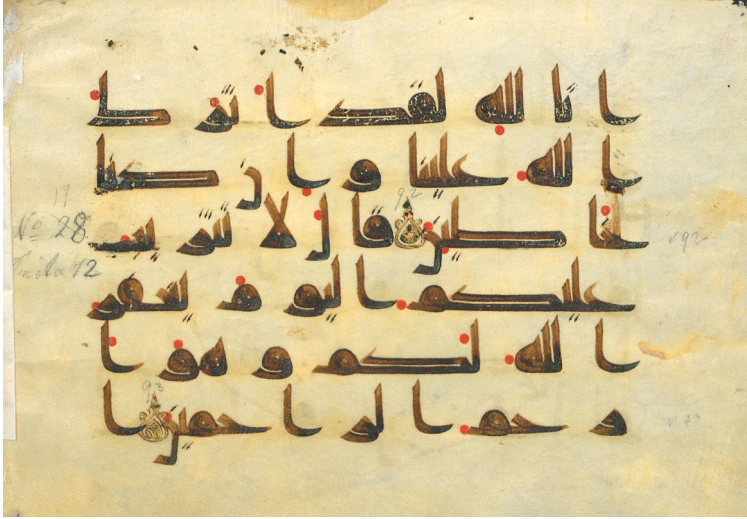 ا تالله لقد اثرك
الله علينا وان كنا
لخطين قال لا تثريب
عليكم اليوم يغفر
الله لكم وهو ا
رحم الراحمين ا
17
92
No 28
v 92
12
93
v 93